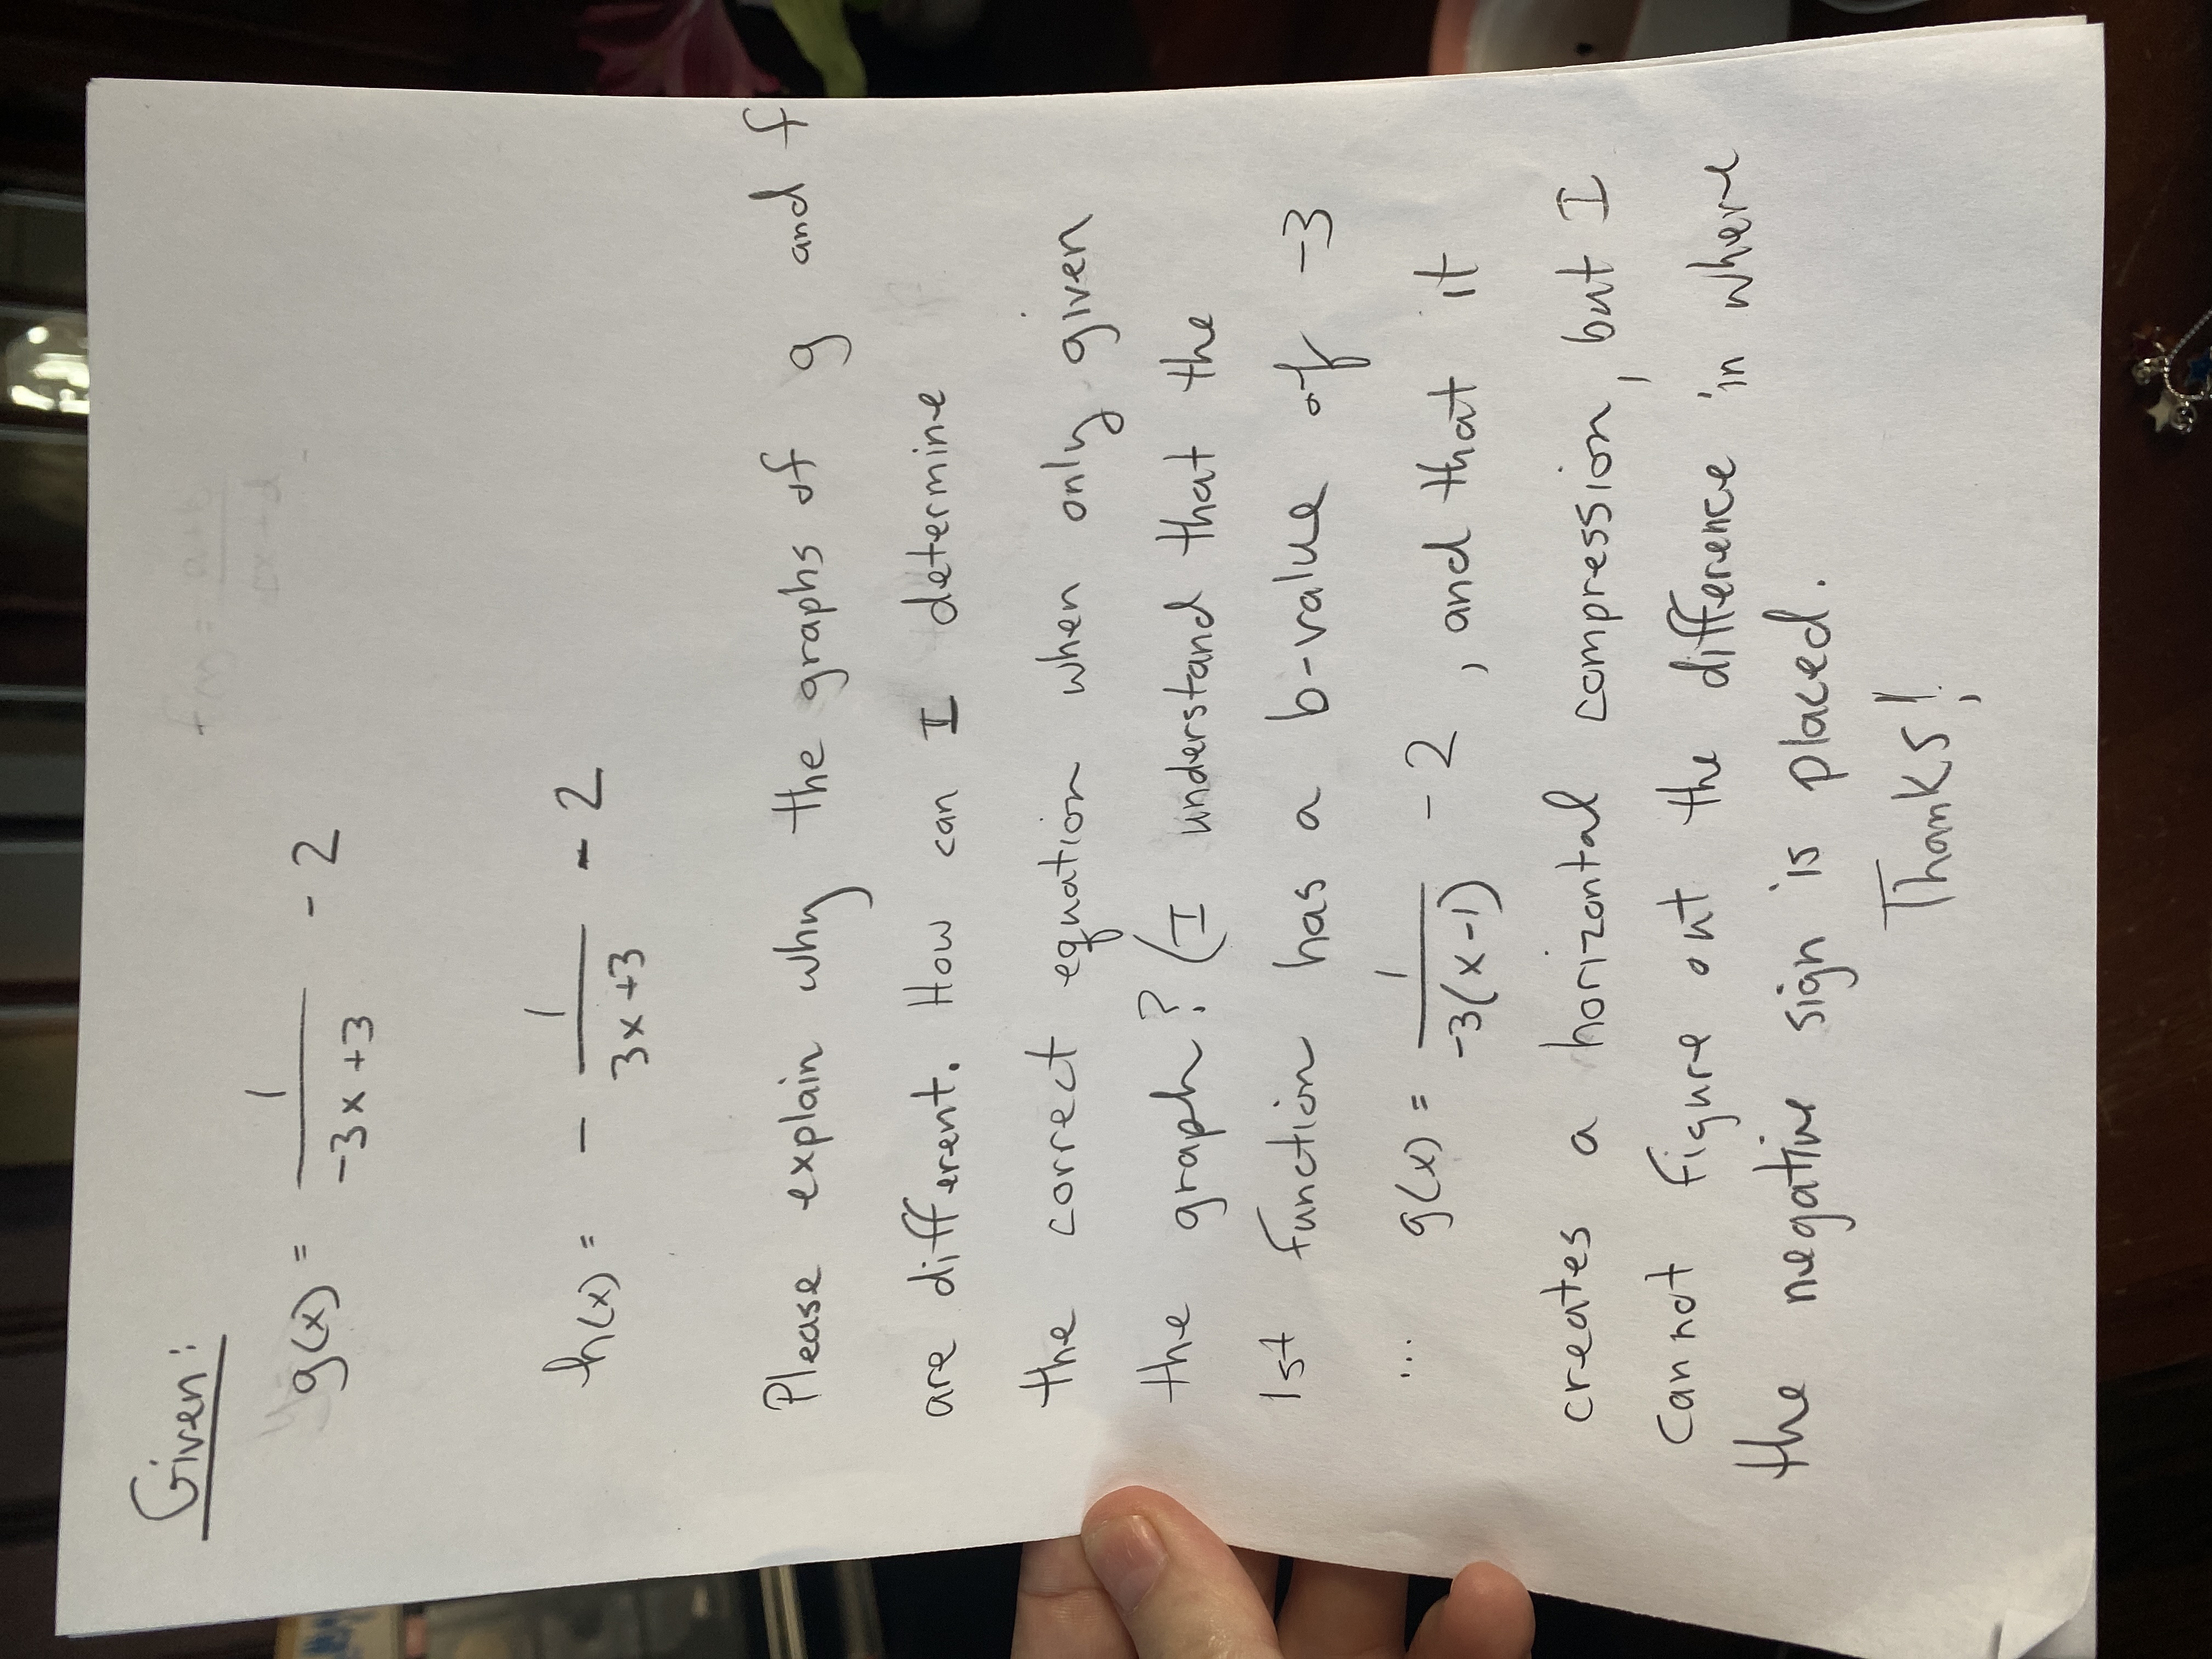 Given:
g(x) = 1/(-3x+3) - 2
h(x) = - 1/(3x+3) - 2
Please explain why the graphs of g and f
are different. How can I determine
the correct equation when only given
the graph? (I understand that the
1st function has a b-value of -3
... g(x) = 1/(-3(x-1)) - 2, and that it
creates a horizontal compression, but I
cannot figure out the difference in where
the negative sign is placed.
Thanks!